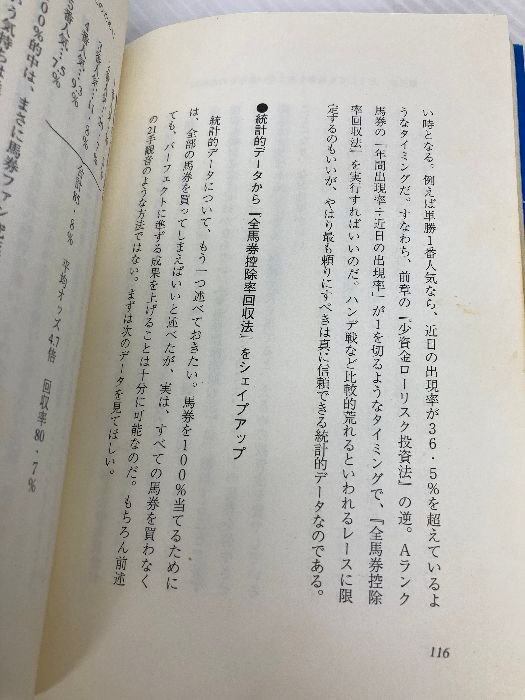 い時となる。例えば単勝1番人気なら、近日の出現率が36・5%を超えているよ
うなタイミングだ。すなわち、前章の『少資金ローリスク投資法』の逆。Aランク
馬券の「年間出現率÷近日の出現率」が1を切るようなタイミングで、『全馬券控除
率回収法』を実行すればいいのだ。ハンデ戦など比較的荒れるといわれるレースに限
定するのもいいが、やはり最も頼りにすべきは真に信頼できる統計的データなのである。
●統計的データから「全馬券控除率回収法」をシェイプアップ
統計的データについて、もう一つ述べておきたい。馬券を100%当てるために
は、全部の馬券を買ってしまえばいいと述べたが、実は、すべての馬券を買わなく
ても、パーフェクトに準ずる成果を上げることは十分に可能なのだ。もちろん前述
の21手観音のような方法ではない。まずは次のデータを見てほしい。
116
4番人気…11・8%
5番人気…7・5%
合計85・8% 平均オッズ4.7倍 回収率80・7%
00%的中は、まさに馬券ファン